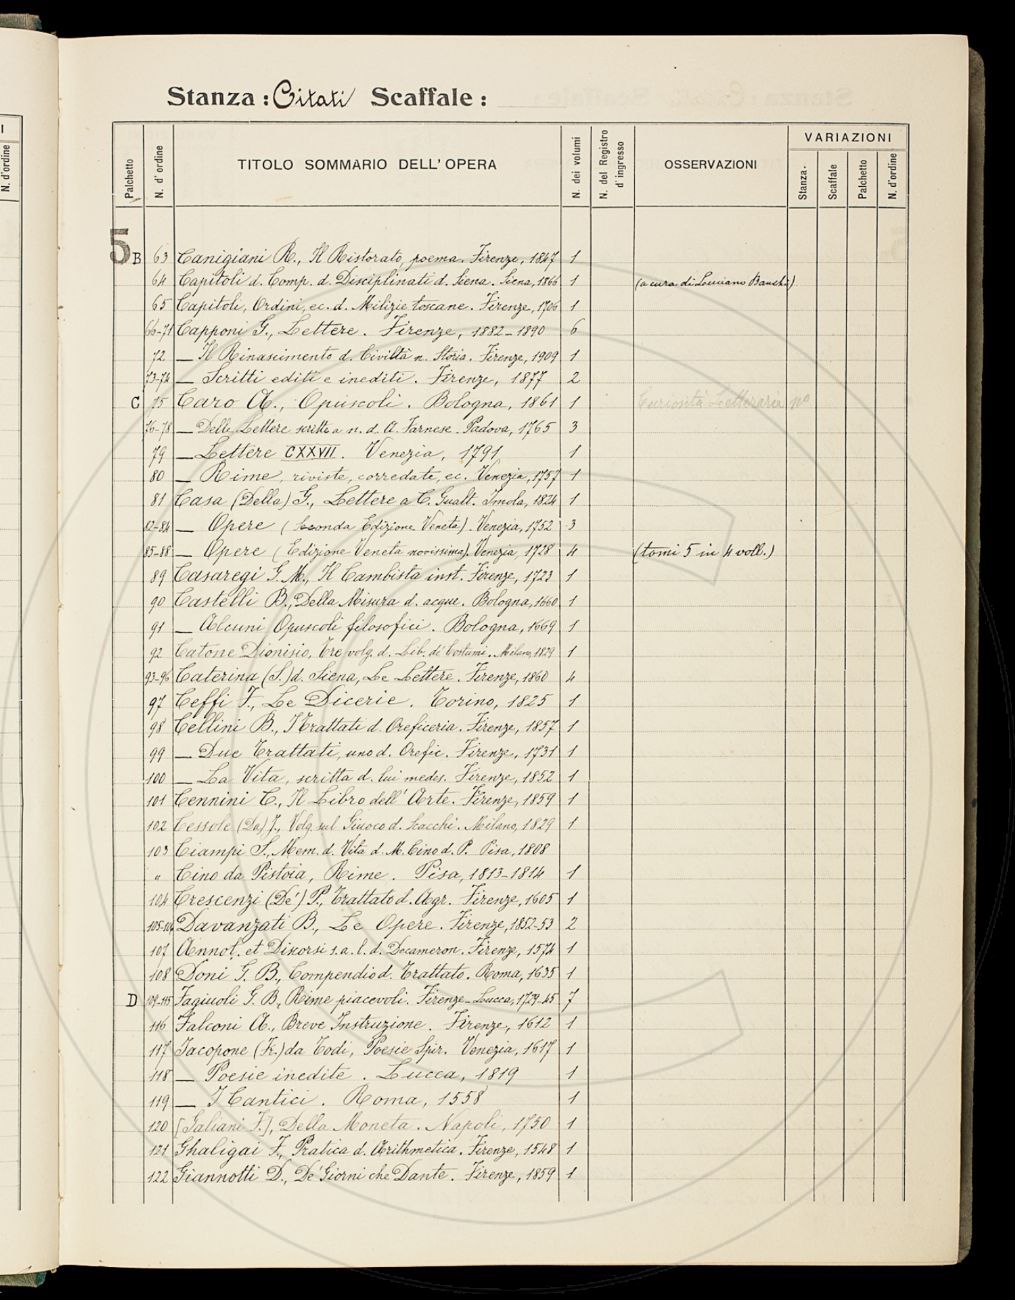 Stanza: Citati Scaffale:
Palchetto N. d'ordine TITOLO SOMMARIO DELL'OPERA N. dei volumi N. del Registro d'ingresso OSSERVAZIONI VARIAZIONI Stanza. Scaffale Palchetto N. d'ordine
5
B 63 Canigiani R., Il Ristorato, poema. Firenze, 1847 1
64 Capitoli d. Comp. d. Disciplinati d. Siena. Siena, 1866 1 (a cura di Luciano Banchi)
65 Capitoli, Ordini, ec. d. Milizie toscane. Firenze, 1706 1
66-71 Capponi G., Lettere. Firenze, 1882-1890 6
72 — Il Rinascimento d. Civiltà n. Storia. Firenze, 1909 1
73-74 — Scritti editi e inediti. Firenze, 1877 2
C 75 Caro A., Opuscoli. Bologna, 1861 1 Curiosità Letteraria nº
76-78 — Delle Lettere scritte a n. d. A. Farnese. Padova, 1765 3
79 — Lettere CXXVII. Venezia, 1791 1
80 — Rime, riviste, corredate, ec. Venezia, 1757 1
81 Casa (Della) G., Lettere a C. Gualt. Imola, 1824 1
82-84 — Opere (Seconda Edizione Veneta). Venezia, 1752 3
85-88 — Opere (Edizione Veneta novissima). Venezia, 1728 4 (tomi 5 in 4 voll.)
89 Casaregi G. M., Il Cambista inst. Firenze, 1723 1
90 Castelli B., Della Misura d. acque. Bologna, 1660 1
91 — Alcuni Opuscoli filosofici. Bologna, 1669 1
92 Catone Dionisio, Tre volg. d. Lib. de' Costumi. Milano, 1829 1
93-96 Caterina (S.) d. Siena, Le Lettere. Firenze, 1860 4
97 Ceffi F., Le Dicerie. Torino, 1825 1
98 Cellini B., I Trattati d. Oreficeria. Firenze, 1857 1
99 — Due Trattati, uno d. Orefic. Firenze, 1731 1
100 — La Vita, scritta d. lui medes. Firenze, 1852 1
101 Cennini C., Il Libro dell'Arte. Firenze, 1859 1
102 Cessole (Da) J., Volg. sul Giuoco d. Scacchi. Milano, 1829 1
103 Ciampi S., Mem. d. Vita d. M. Cino d. P. Pisa, 1808
" Cino da Pistoia, Rime. Pisa, 1813-1814 1
104 Crescenzi (De') P., Trattato d. Agr. Firenze, 1605 1
105-106 Davanzati B., Le Opere. Firenze, 1852-53 2
107 Annot. et Discorsi s. a. l. d. Decameron. Firenze, 1574 1
108 Doni G. B., Compendio d. Trattato. Roma, 1635 1
D 109-115 Fagiuoli G. B., Rime piacevoli. Firenze-Lucca, 1729-45 7
116 Falconi A., Breve Instruzione. Firenze, 1612 1
117 Jacopone (F.) da Todi, Poesie Spir. Venezia, 1617 1
118 — Poesie inedite. Lucca, 1819 1
119 — I Cantici. Roma, 1558 1
120 [Galiani F.], Della Moneta. Napoli, 1750 1
121 Ghaligai F., Pratica d. Arithmetica. Firenze, 1548 1
122 Giannotti D., De' Giorni che Dante. Firenze, 1859 1
I
N. d'ordine